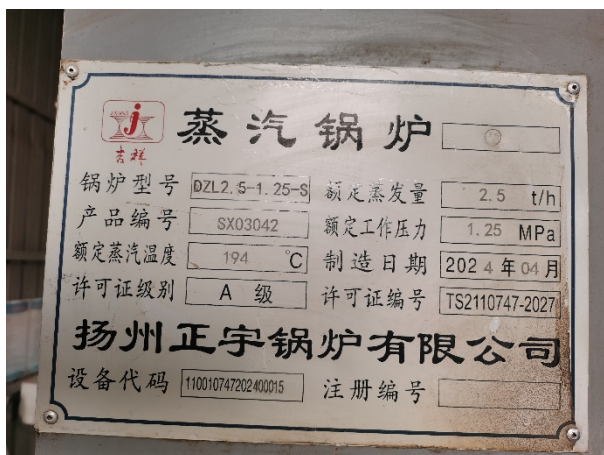 蒸汽锅炉
吉祥
锅炉型号 DZL2.5-1.25-S 额定蒸发量 2.5 t/h
产品编号 SX03042 额定工作压力 1.25 MPa
额定蒸汽温度 194 ℃ 制造日期 2024年04月
许可证级别 A 级 许可证编号 TS2110747-2027
扬州正宇锅炉有限公司
设备代码 110010747202400015 注册编号